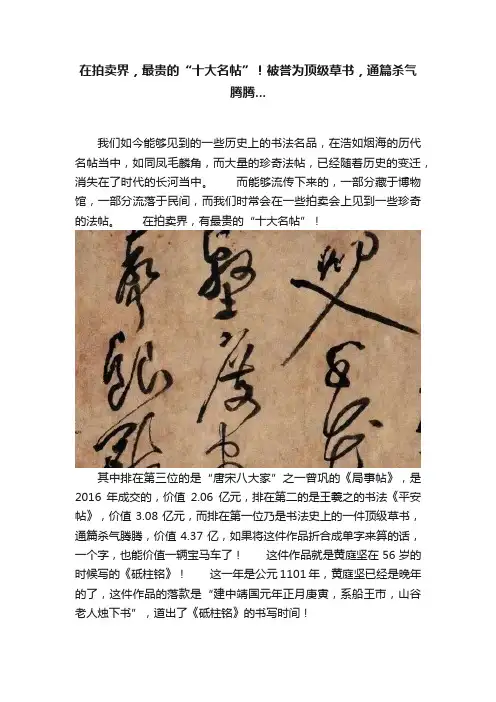 在拍卖界，最贵的“十大名帖”！被誉为顶级草书，通篇杀气
腾腾...
我们如今能够见到的一些历史上的书法名品，在浩如烟海的历代
名帖当中，如同凤毛麟角，而大量的珍奇法帖，已经随着历史的变迁，
消失在了时代的长河当中。 而能够流传下来的，一部分藏于博物
馆，一部分流落于民间，而我们时常会在一些拍卖会上见到一些珍奇
的法帖。 在拍卖界，有最贵的“十大名帖”！
其中排在第三位的是“唐宋八大家”之一曾巩的《局事帖》，是
2016 年成交的，价值 2.06 亿元，排在第二的是王羲之的书法《平安
帖》，价值 3.08 亿元，而排在第一位乃是书法史上的一件顶级草书，
通篇杀气腾腾，价值 4.37 亿，如果将这件作品折合成单字来算的话，
一个字，也能价值一辆宝马车了！ 这件作品就是黄庭坚在 56 岁的
时候写的《砥柱铭》！ 这一年是公元 1101 年，黄庭坚已经是晚年
的了，这件作品的落款是“建中靖国元年正月庚寅，系船王市，山谷
老人烛下书”，道出了《砥柱铭》的书写时间！